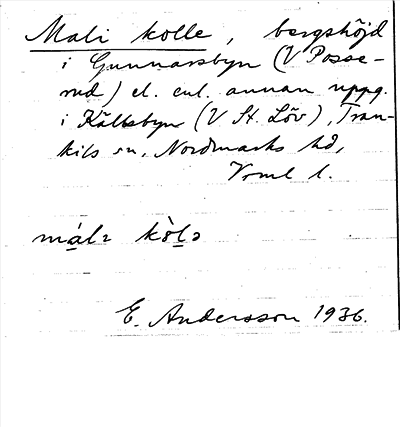 Mali kolle, bergshöjd
i Gunnarsbyn (V Posse-
rud) el. enl. annan uppg.
i Källsbyn (V St. Löv), Tran-
kils sn, Nordmarks hd,
Vrml l.
málɛ kòlɔ
E. Andersson 1936.